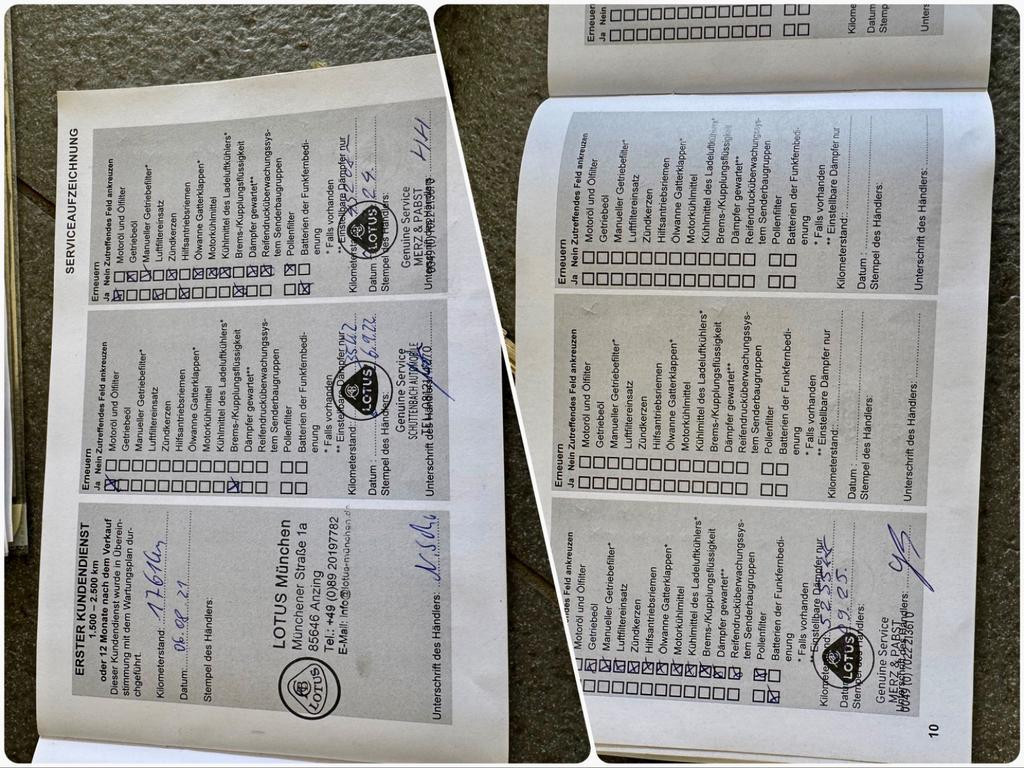 SERVICEAUFZEICHNUNG
ERSTER KUNDENDIENST
1.500 – 2.500 km
oder 12 Monate nach dem Verkauf
Dieser Kundendienst wurde in Überein-
stimmung mit dem Wartungsplan dur-
chgeführt.
Kilometerstand: 1761km
Datum: 06.09.21
Stempel des Händlers:
LOTUS
LOTUS München
Münchener Straße 1a
85646 Anzing
Tel.: +49 (0)89 20197782
E-Mail: info@lotus-muenchen.de
Unterschrift des Händlers:
Erneuern
Ja Nein Zutreffendes Feld ankreuzen
Motoröl und Ölfilter
Getriebeöl
Manueller Getriebefilter*
Luftfiltereinsatz
Zündkerzen
Hilfsantriebsriemen
Ölwanne Gatterklappen*
Motorkühlmittel
Kühlmittel des Ladeluftkühlers*
Brems-/Kupplungsflüssigkeit
Dämpfer gewartet**
Reifendrucküberwachungssys-
tem Senderbaugruppen
Pollenfilter
Batterien der Funkfernbedi-
enung
* Falls vorhanden
** Einstellbare Dämpfer nur
Kilometerstand:
Datum: 6.9.22
Stempel des Händlers:
LOTUS
Genuine Service
SCHÜTTENBACH AUTOMOBILE
Unterschrift des Händlers:
Erneuern
Ja Nein Zutreffendes Feld ankreuzen
Motoröl und Ölfilter
Getriebeöl
Manueller Getriebefilter*
Luftfiltereinsatz
Zündkerzen
Hilfsantriebsriemen
Ölwanne Gatterklappen*
Motorkühlmittel
Kühlmittel des Ladeluftkühlers*
Brems-/Kupplungsflüssigkeit
Dämpfer gewartet**
Reifendrucküberwachungssys-
tem Senderbaugruppen
Pollenfilter
Batterien der Funkfernbedi-
enung
* Falls vorhanden
** Einstellbare Dämpfer nur
Kilometerstand:
Datum
Stempel des Händlers:
LOTUS
Genuine Service
MERZ & PABST
Unterschrift des Händlers:
endes Feld ankreuzen
Motoröl und Ölfilter
Getriebeöl
Manueller Getriebefilter*
Luftfiltereinsatz
Zündkerzen
Hilfsantriebsriemen
Ölwanne Gatterklappen*
Motorkühlmittel
Kühlmittel des Ladeluftkühlers*
Brems-/Kupplungsflüssigkeit
Dämpfer gewartet**
Reifendrucküberwachungssys-
tem Senderbaugruppen
Pollenfilter
Batterien der Funkfernbedi-
enung
* Falls vorhanden
** Einstellbare Dämpfer nur
LOTUS
Genuine Service
MERZ & PABST
0049 (0) 7022 213610
10
Erneuern
Ja Nein Zutreffendes Feld ankreuzen
Motoröl und Ölfilter
Getriebeöl
Manueller Getriebefilter*
Luftfiltereinsatz
Zündkerzen
Hilfsantriebsriemen
Ölwanne Gatterklappen*
Motorkühlmittel
Kühlmittel des Ladeluftkühlers*
Brems-/Kupplungsflüssigkeit
Dämpfer gewartet**
Reifendrucküberwachungssys-
tem Senderbaugruppen
Pollenfilter
Batterien der Funkfernbedi-
enung
* Falls vorhanden
** Einstellbare Dämpfer nur
Kilometerstand:
Datum :
Stempel des Händlers:
Unterschrift des Händlers:
Erneuern
Ja Nein Zutreffendes Feld ankreuzen
Motoröl und Ölfilter
Getriebeöl
Manueller Getriebefilter*
Luftfiltereinsatz
Zündkerzen
Hilfsantriebsriemen
Ölwanne Gatterklappen*
Motorkühlmittel
Kühlmittel des Ladeluftkühlers*
Brems-/Kupplungsflüssigkeit
Dämpfer gewartet**
Reifendrucküberwachungssys-
tem Senderbaugruppen
Pollenfilter
Batterien der Funkfernbedi-
enung
* Falls vorhanden
** Einstellbare Dämpfer nur
Kilometerstand:
Datum :
Stempel des Händlers:
Unterschrift des Händlers:
Erneuern
Ja Nein
Kilome
Datum
Stemp
Unters